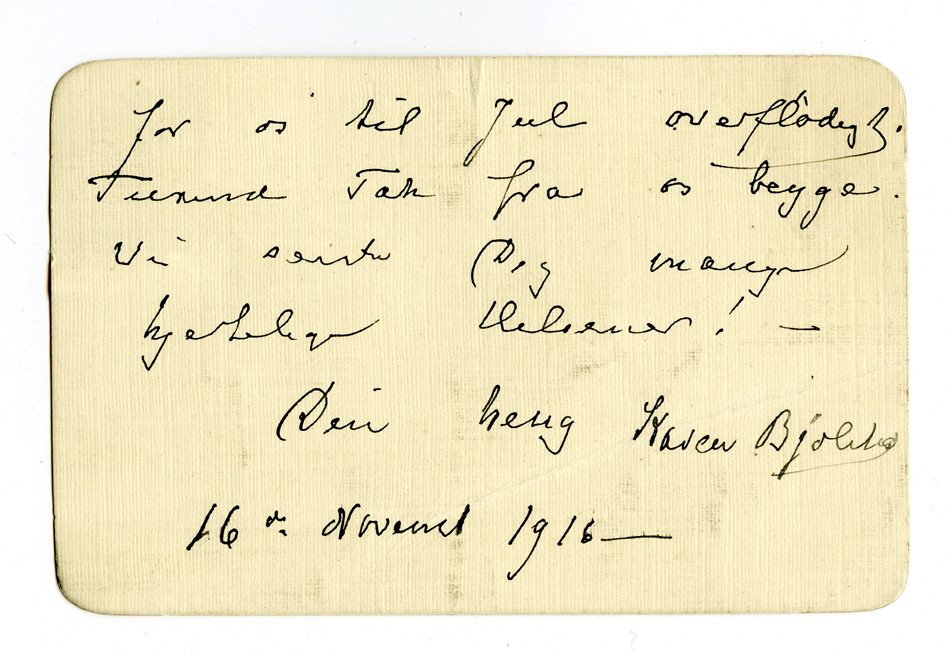 for os til Jul overflödigt.
Tusund Tak fra os beyge.
Vi sender Dig mange
hjertelige Hilsener! —
Din heng Karen
16de Novembr 1916 —